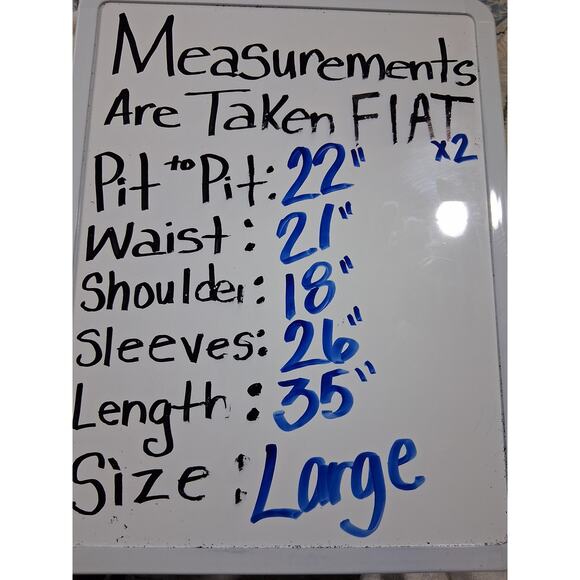 Measurements
Are Taken FlAT
x2
Pit to Pit: 22"
Waist: 21"
Shoulder: 18"
Sleeves: 26"
Length: 35"
Size: Large